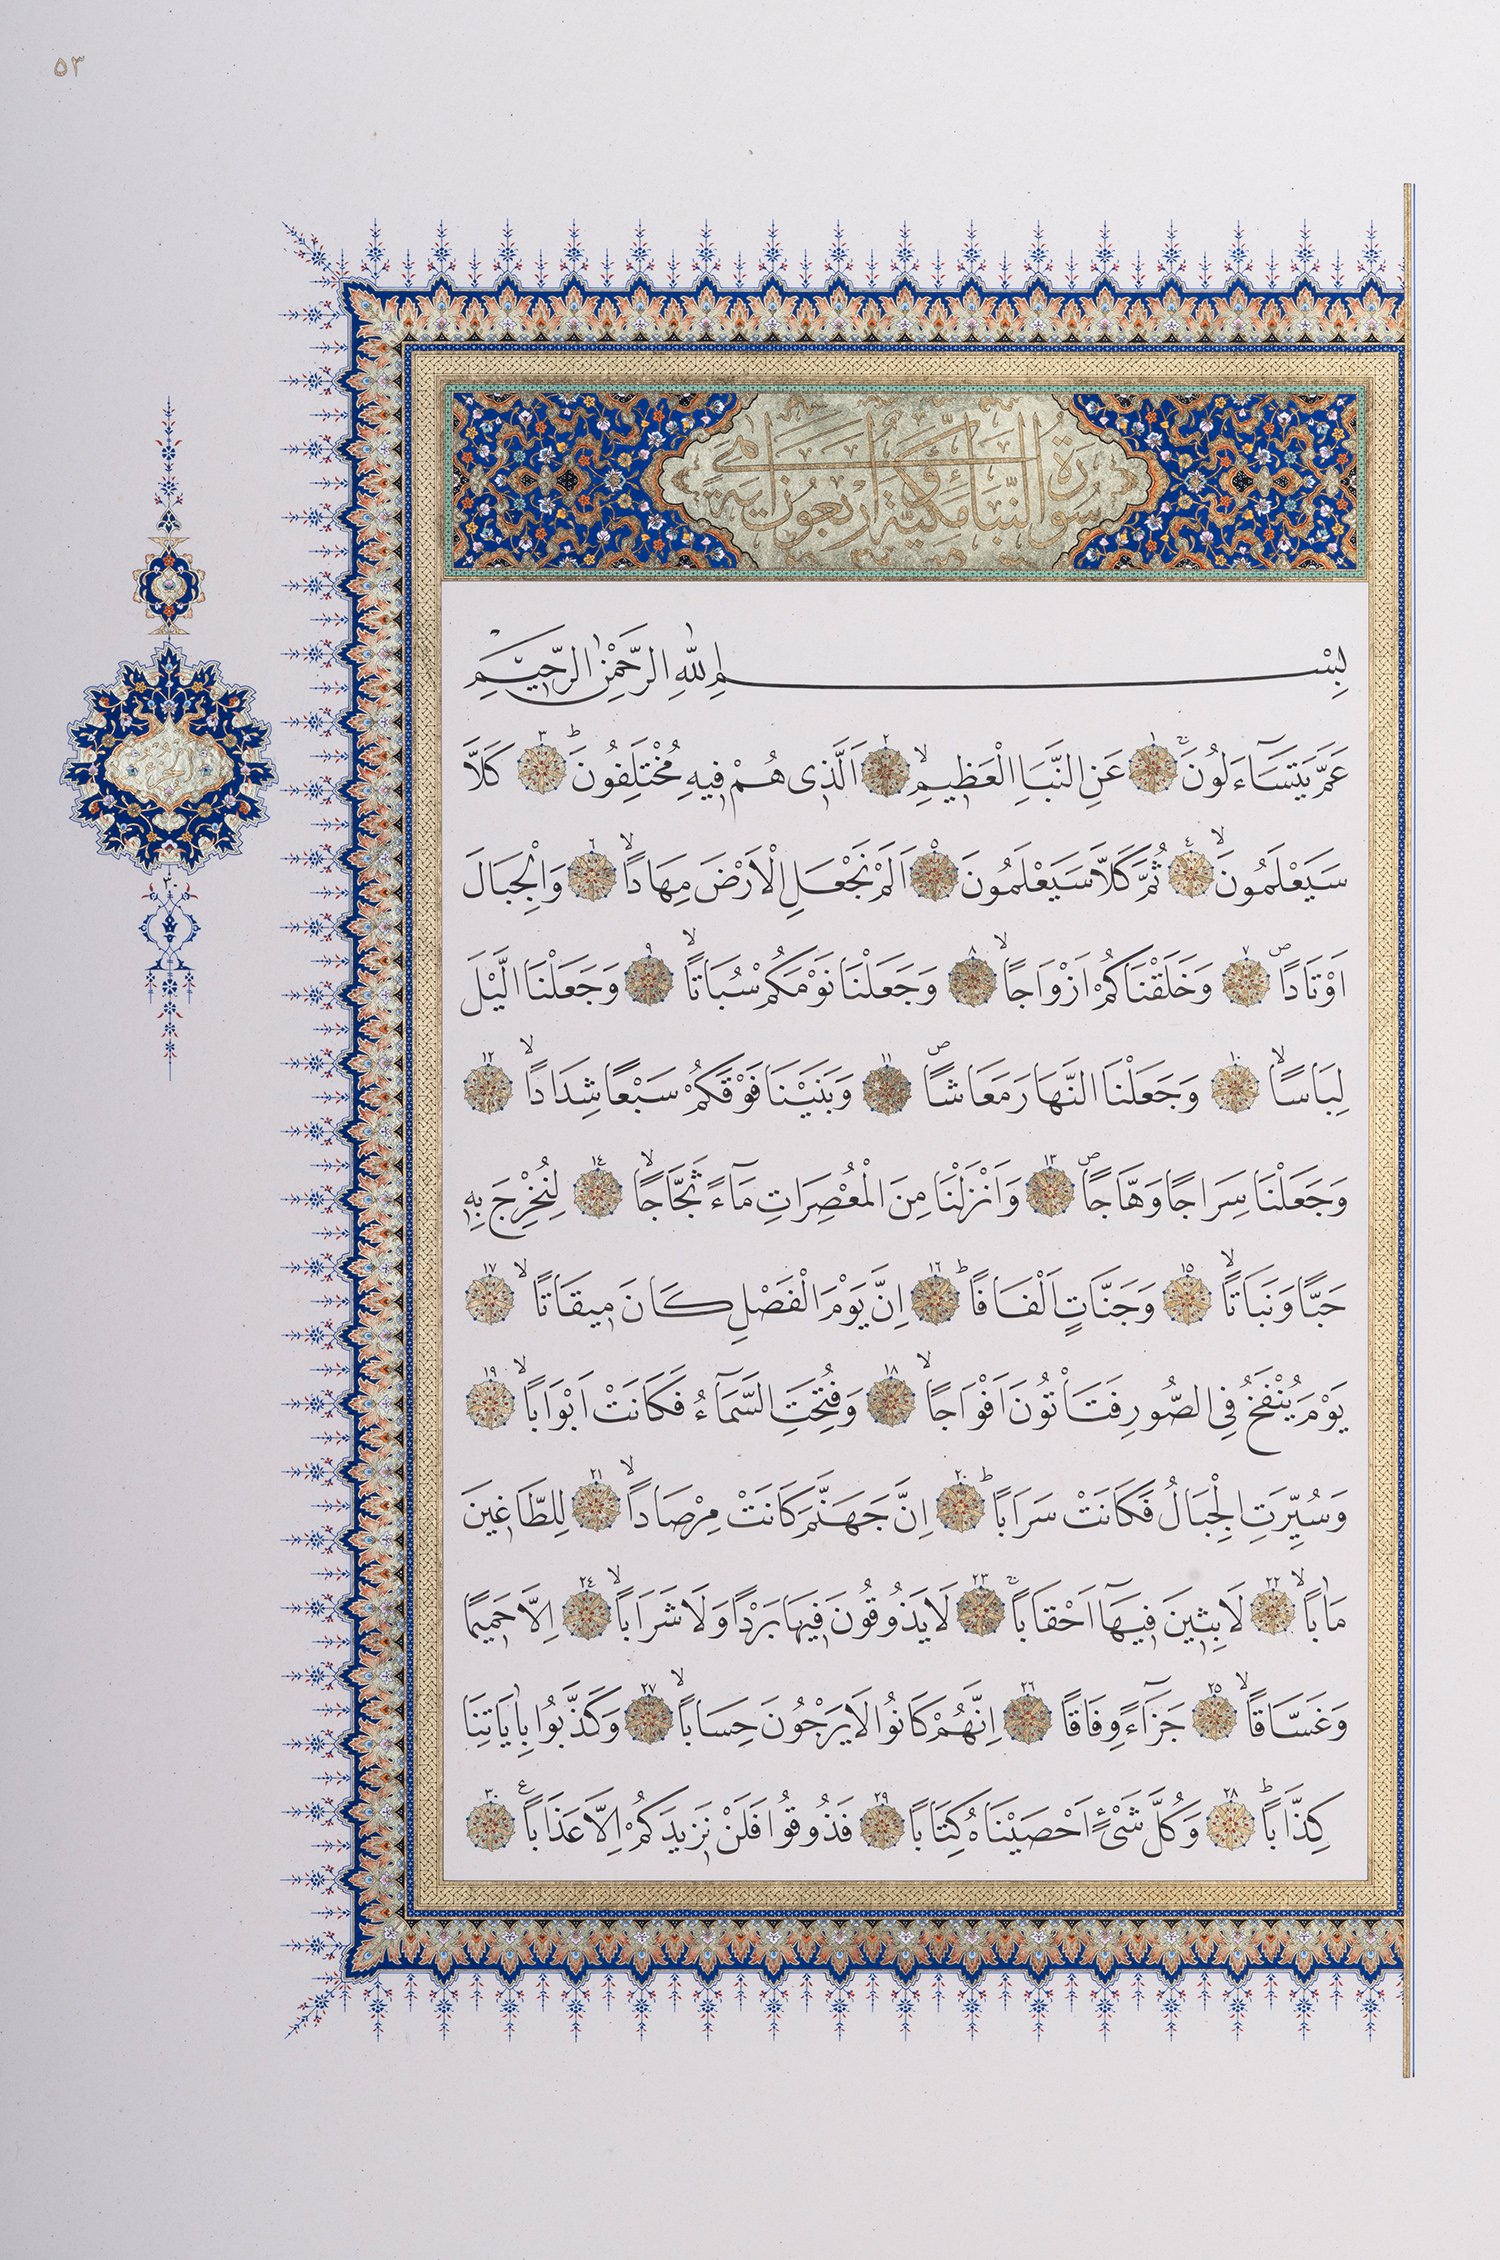 ٥٣
سُورَةُ النَّبَأِ مَكِّيَّةٌ وَهِيَ أَرْبَعُونَ اٰيَةً
بِسْمِ اللّٰهِ الرَّحْمٰنِ الرَّحِيمِ
عَمَّ يَتَسَآءَلُونَۚ ١ عَنِ النَّبَاِ الْعَظِيمِۙ ٢ اَلَّذِى هُمْ فِيهِ مُخْتَلِفُونَۜ ٣ كَلَّا
سَيَعْلَمُونَۙ ٤ ثُمَّ كَلَّا سَيَعْلَمُونَ ٥ اَلَمْ نَجْعَلِ الْاَرْضَ مِهَادًاۙ ٦ وَالْجِبَالَ
اَوْتَادًاۖ ٧ وَخَلَقْنَاكُمْ اَزْوَاجًاۙ ٨ وَجَعَلْنَا نَوْمَكُمْ سُبَاتًاۙ ٩ وَجَعَلْنَا الَّيْلَ
لِبَاسًاۙ ١٠ وَجَعَلْنَا النَّهَارَ مَعَاشًاۖ ١١ وَبَنَيْنَا فَوْقَكُمْ سَبْعًا شِدَادًاۙ ١٢
وَجَعَلْنَا سِرَاجًا وَهَّاجًاۖ ١٣ وَاَنْزَلْنَا مِنَ الْمُعْصِرَاتِ مَآءً ثَجَّاجًاۙ ١٤ لِنُخْرِجَ بِهِ
حَبًّا وَنَبَاتًاۙ ١٥ وَجَنَّاتٍ اَلْفَافًاۜ ١٦ اِنَّ يَوْمَ الْفَصْلِ كَانَ مِيقَاتًاۙ ١٧
يَوْمَ يُنْفَخُ فِى الصُّورِ فَتَاْتُونَ اَفْوَاجًاۙ ١٨ وَفُتِحَتِ السَّمَآءُ فَكَانَتْ اَبْوَابًاۙ ١٩
وَسُيِّرَتِ الْجِبَالُ فَكَانَتْ سَرَابًاۜ ٢٠ اِنَّ جَهَنَّمَ كَانَتْ مِرْصَادًاۙ ٢١ لِلطَّاغِينَ
مَاٰبًاۙ ٢٢ لَابِثِينَ فِيهَآ اَحْقَابًاۚ ٢٣ لَا يَذُوقُونَ فِيهَا بَرْدًا وَلَا شَرَابًاۙ ٢٤ اِلَّا حَمِيمًا
وَغَسَّاقًاۙ ٢٥ جَزَآءً وِفَاقًا ٢٦ اِنَّهُمْ كَانُوا لَا يَرْجُونَ حِسَابًاۙ ٢٧ وَكَذَّبُوا بِاٰيَاتِنَا
كِذَّابًاۜ ٢٨ وَكُلَّ شَىْءٍ اَحْصَيْنَاهُ كِتَابًا ٢٩ فَذُوقُوا فَلَنْ نَزِيدَكُمْ اِلَّا عَذَابًاۚ ٣٠